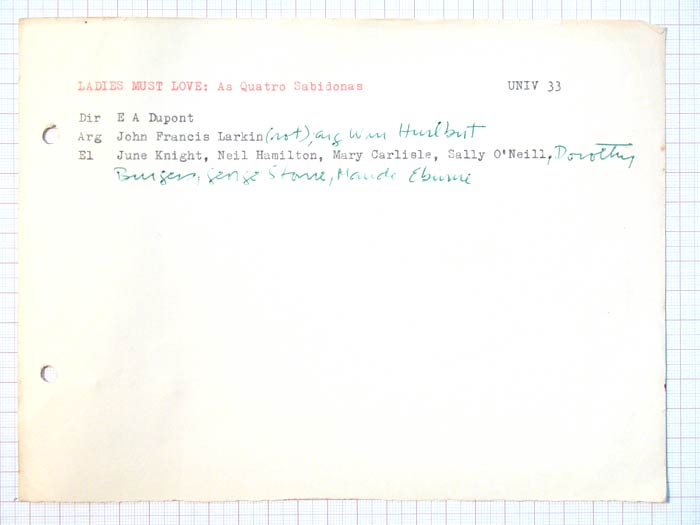 LADIES MUST LOVE: As Quatro Sabidonas UNIV 33
Dir E A Dupont
Arg John Francis Larkin (rot), arg Wm Hurlbut
El June Knight, Neil Hamilton, Mary Carlisle, Sally O'Neill, Dorothy
Burgess, George Stone, Maude Eburne